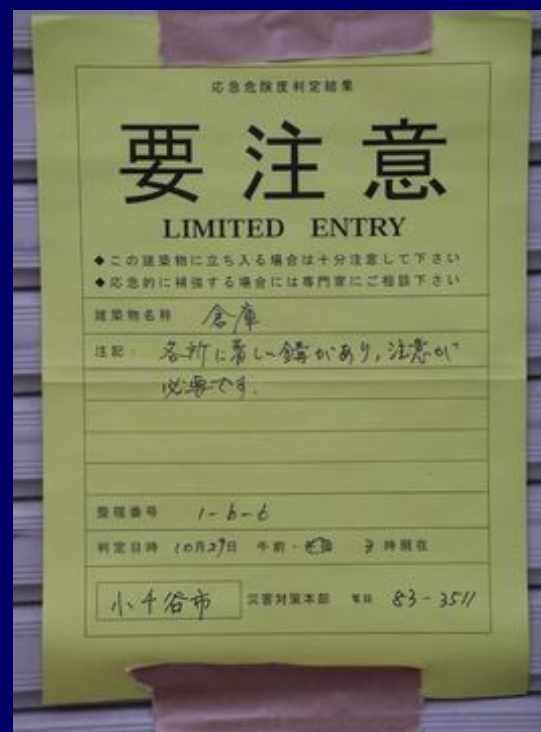 応急危険度判定結果
要注意
LIMITED ENTRY
◆この建築物に立ち入る場合は十分注意して下さい
◆応急的に補強する場合には専門家にご相談下さい
建築物名称 倉庫
注記: 各所に著しい錆があり,注意が
必要です.
整理番号 1-6-6
判定日時 10月29日 午前・ 時現在
小千谷市 災害対策本部 電話 83-3511